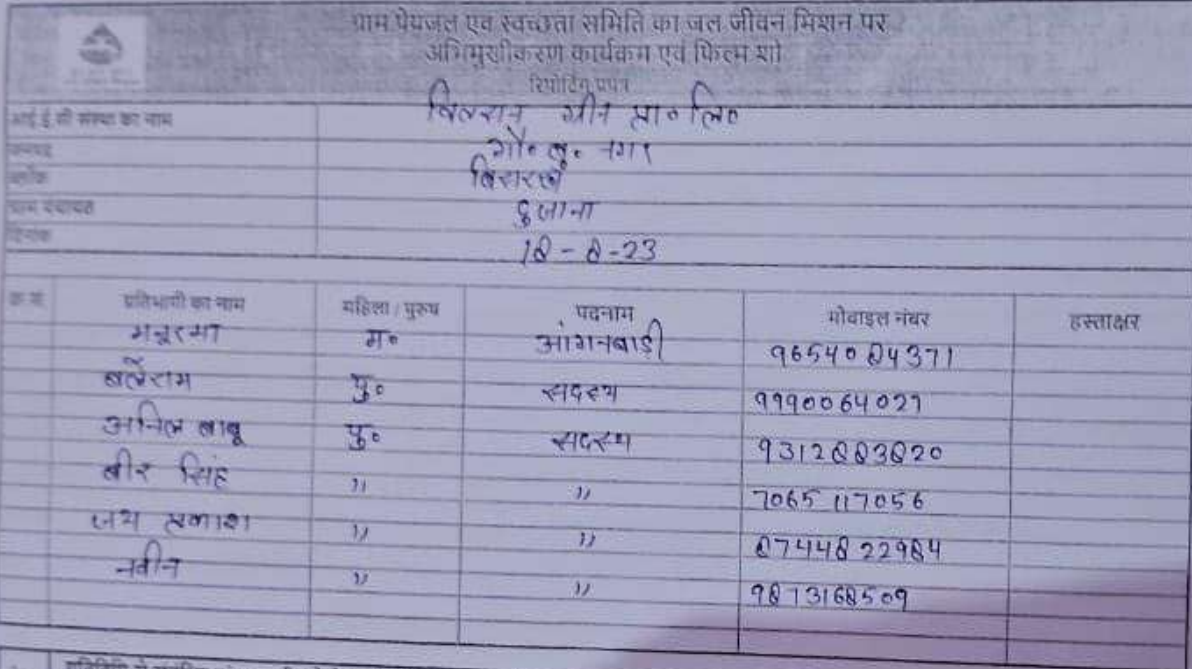 ग्राम पेयजल एवं स्वच्छता समिति का जल जीवन मिशन पर
अभिमुखीकरण कार्यक्रम एवं फिल्म शो
रिपोर्टिंग प्रपत्र
आई ई सी संस्था का नाम ग्रीन प्रा० लि०
जनपद गौ० बु० नगर
ब्लॉक बिसरख
ग्राम पंचायत दुजाना
दिनांक 18-8-23
क्र सं प्रतिभागी का नाम महिला / पुरुष पदनाम मोबाइल नंबर हस्ताक्षर
म० आंगनबाड़ी 9654084371
बलेराम पु० सदस्य 9990064021
अनिल बाबू पु० सदस्य 9312883820
बीर सिंह " " 7065117056
जय प्रकाश " " 8744822984
नवीन " " 9813168509